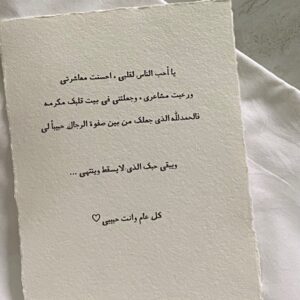 يا أحب الناس لقلبي ، احسنت معاشرتي
ورعيت مشاعري ، وجعلتني في بيت قلبك مكرمه
فالحمدلله الذي جعلك من بين صفوة الرجال حبيباً لي
ويبقى حبك الذي لا يسقط وينتهي ...
كل عام وانت حبيبي ♡